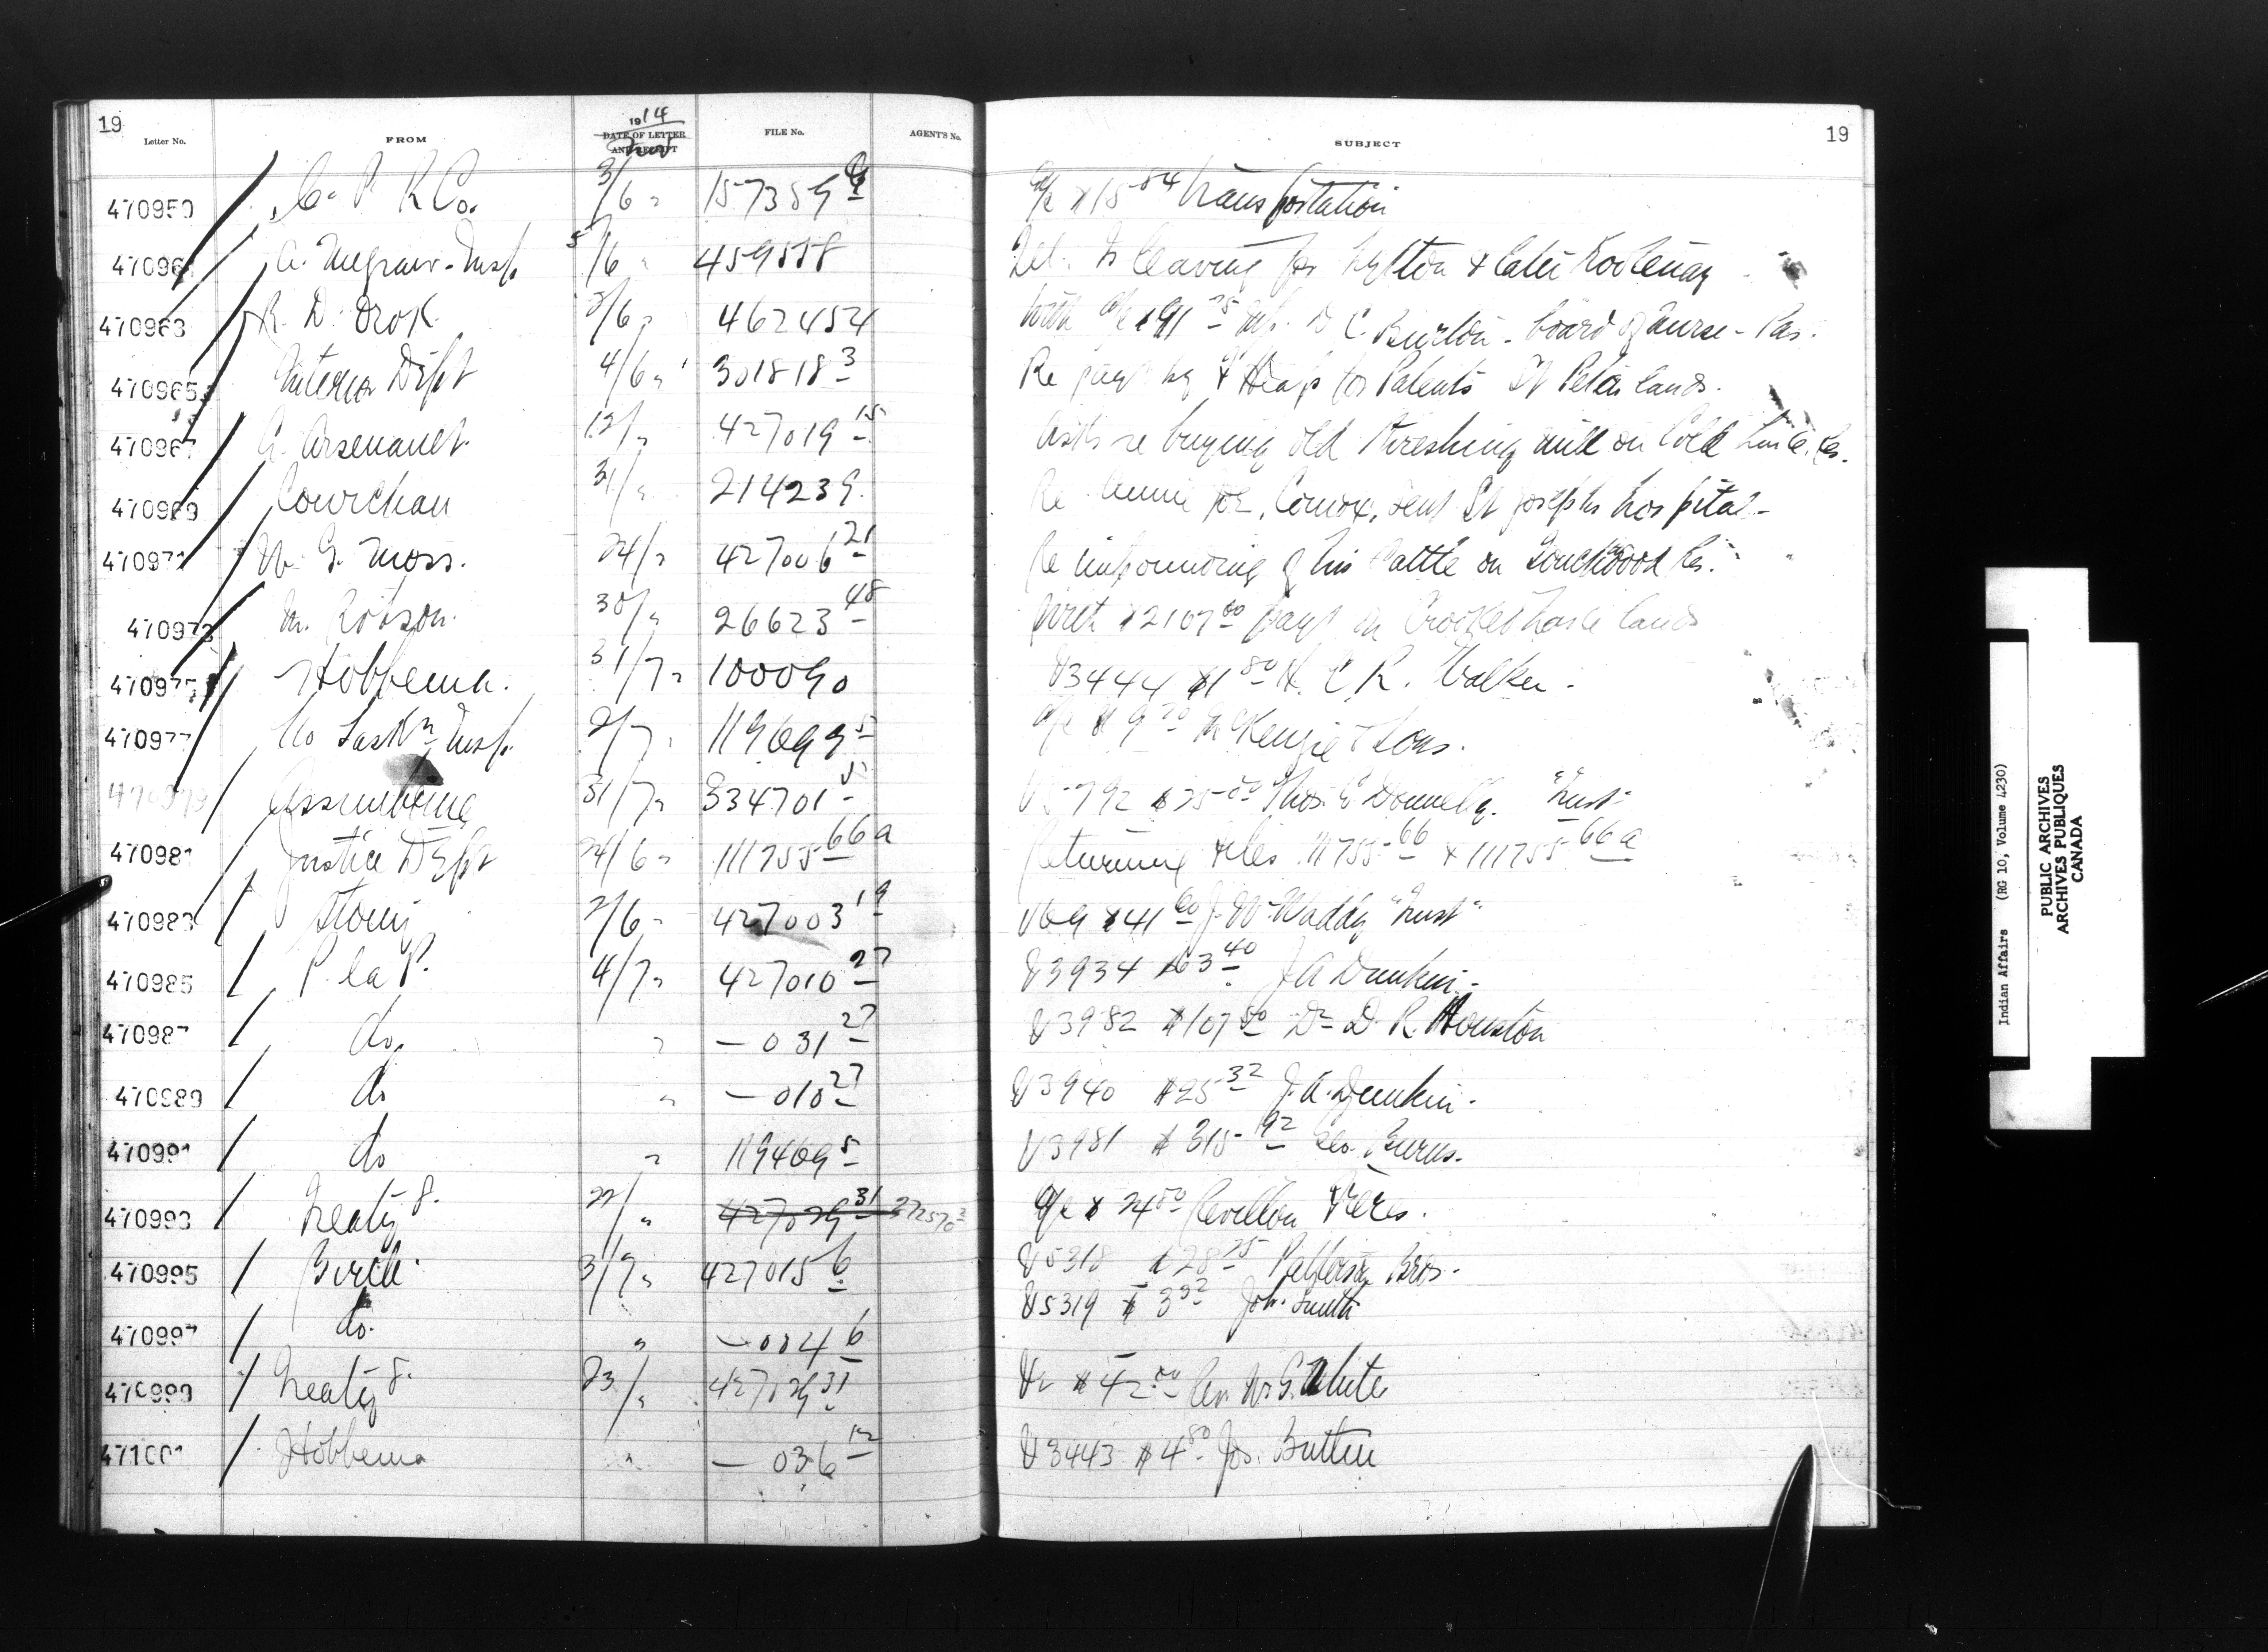 19
Letter No. FROM 1914 DATE OF LETTER AND RECEIPT Nov FILE No. AGENT'S No. SUBJECT 19
470959 C. P. R Co. 3/6 " 157359 a/c $15 84 transportation
47096 Insp. 5/6 " 459558 Tel. Is leaving for Lytton & later Kootenay
470963 R. D. 3/6 " 462454 With a/c $91 75 C. Burton - board of nurse - Pas.
470965 Interior Dept 4/6 " 301818 3 Re for Patents St Peters lands.
470967 A. Arsenault. 12/ " 427019 15 Asks re buying old threshing mill on Cold Res.
470969 Cowichan 31/ " 214239. Re Joe, Comox, sent St Josephs hospital -
47097 W. G. Moss. 24/ " 427006 21 Re impounding of his cattle on Touchwood Res.
470973 M. Robson. 30/ " 26623 48 With $2107 00 payt on Crooked lands
470975 Hobbema. 31/7 " 100090 V3444 $1 80 H. C. R. Walker.
470977 No Saskn Insp. 2/7 " 119699 5 a/c $9 70 McKenzie & Sons.
470979 Assiniboine 31/7 " 334701 5 V 792 $25 00 Thos. Donnelly. "Trust"
470981 Justice Dept 24/6 " 111755 66a Returning files 111755 66 & 111755 66a
470983 Stony 2/6 " 427003 19 V69 $41 60 J. W. Waddy "Trust"
470985 P. la P. 4/7 " 427010 27 V3934 $63 40 J A Dunkin -
470987 do. " — 031 27 V3982 $107 50 Dr D. R. Houston
470989 do " — 010 27 V3940 $25 32 J. A. Dunkin -
470991 do " 119469 5 V3981 $315 92 Geo. Burns.
470993 Treaty 8. 22/ " 427029 31 272570 2 a/c $24 50 Revillon Freres.
470995 Birtle. 31/7 " 427015 6 V5318 $28 75 Patterson Bros.
470997 do. " — 004 6 V5319 $3 32 Joh. Smith
470999 Treaty 8. 23/ " 427029 31 V2 $42 00 Rev. W. G. White
471001 Hobbema " — 036 12 V3443 $4 80 Jos. Buttin
Indian Affairs (RG 10, Volume 4230)
PUBLIC ARCHIVES
ARCHIVES PUBLIQUES
CANADA